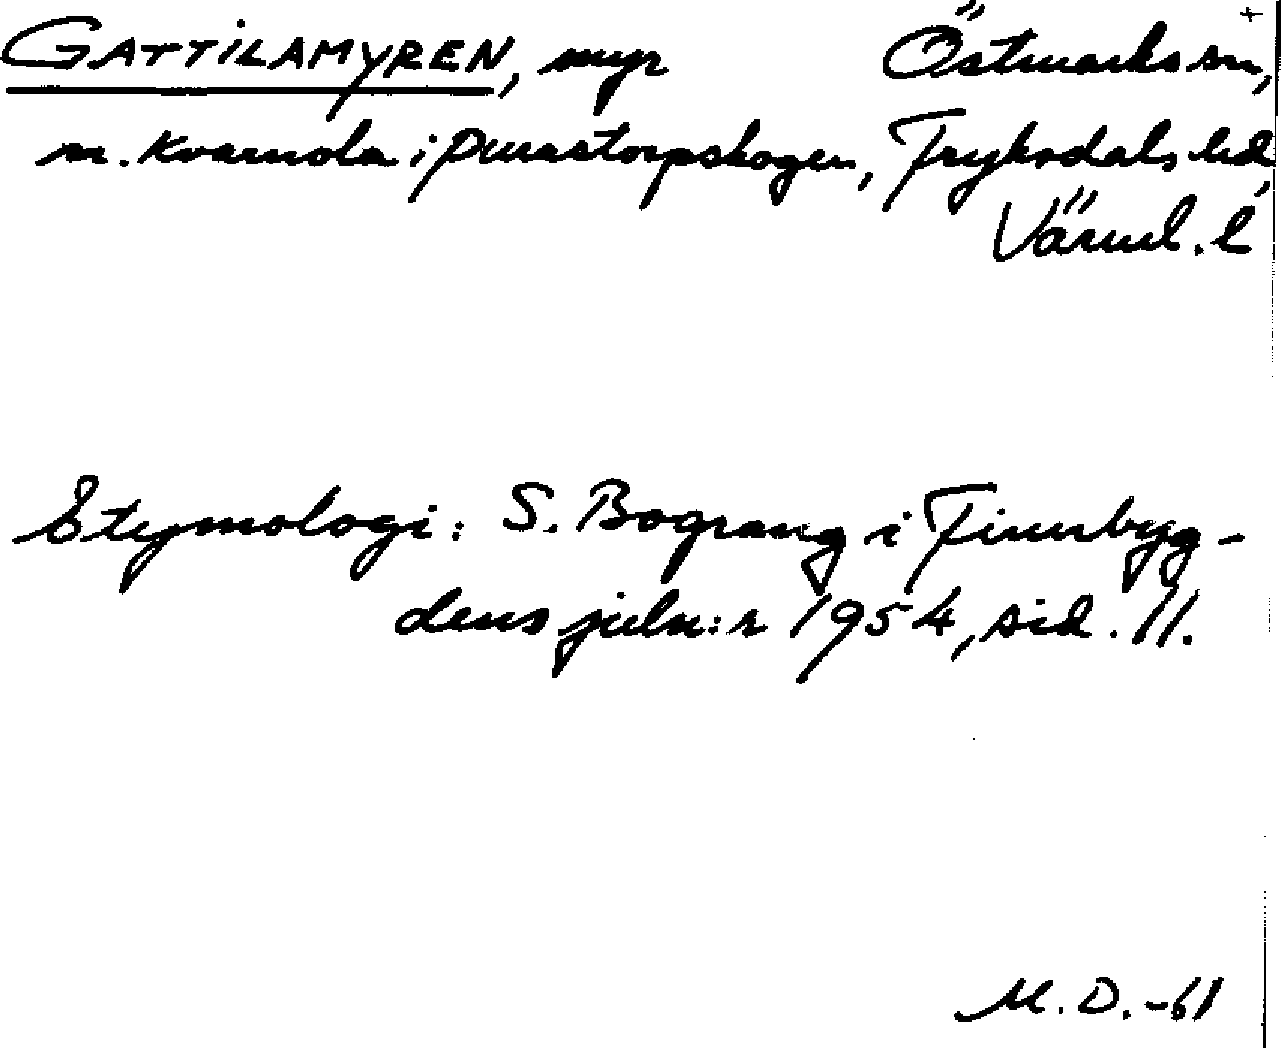 GATTILAMYREN, myr Östmarks sn,
n. Kvarnola i Purastorpskogen, Fryksdals hd,
Värml. l
Etymologi: S. Bograng i Finnbyg-
dens juln:r 1954, sid. 11.
M. D. -61